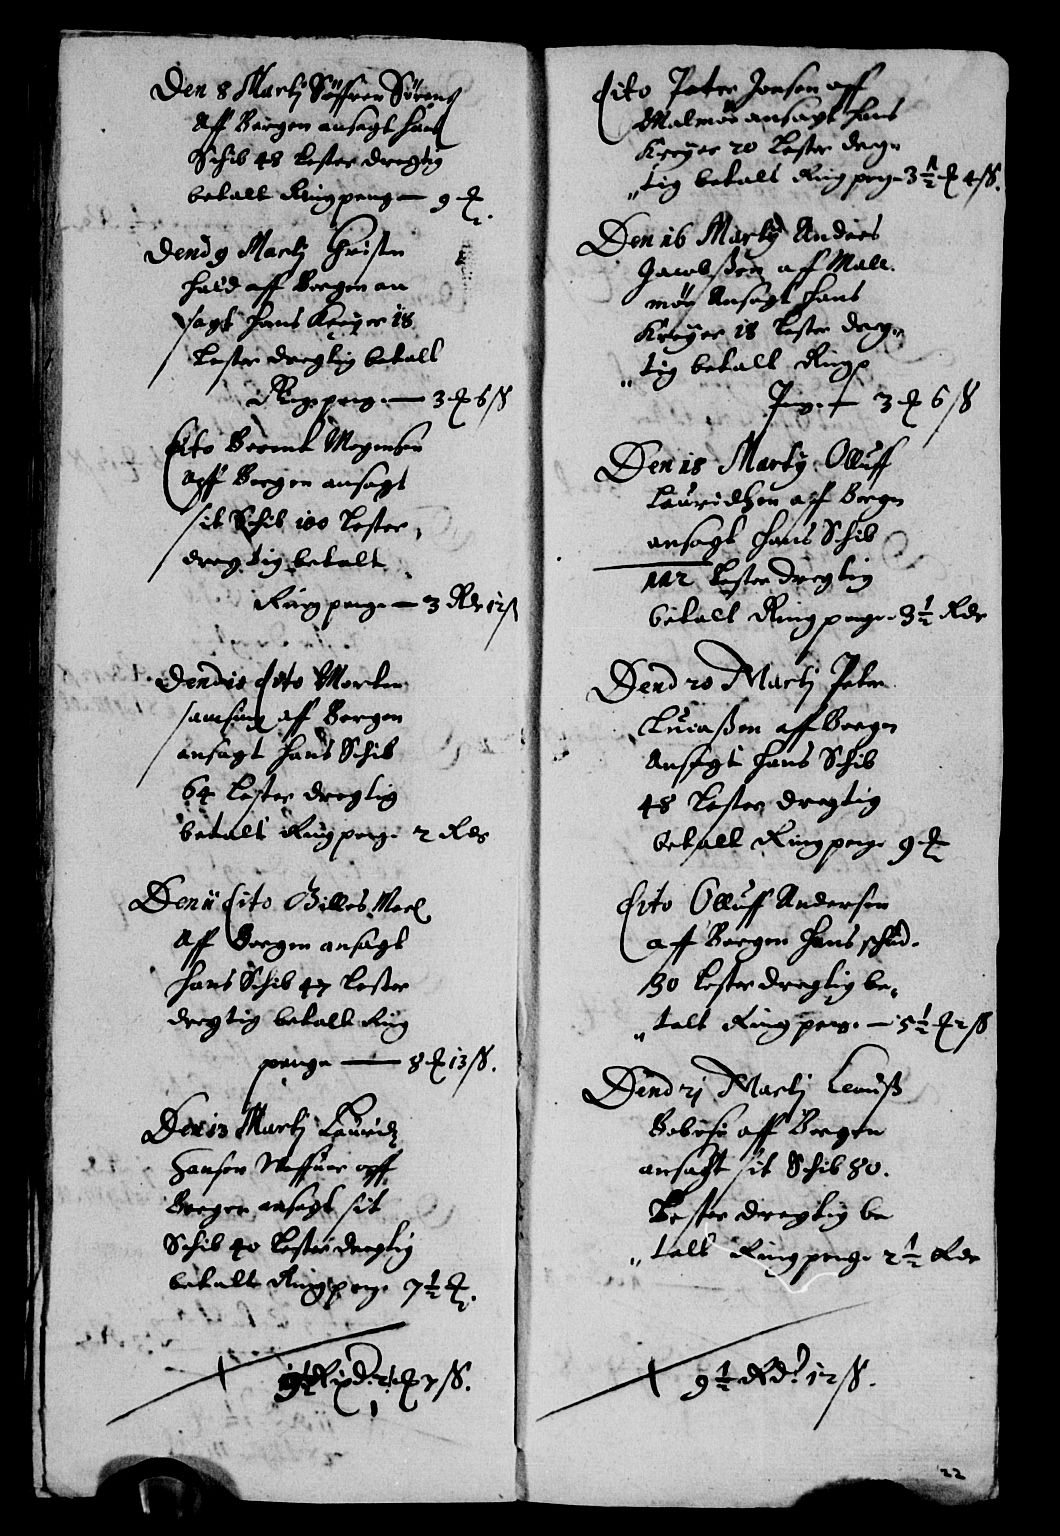 Den 8 Martj Söffren Sörens
Aff Bergen ansagt hans
Schib 48 Lester dregtig
betalt Ringpeng — 9 ⅌.
Dend 9 Martj Christen
hald aff Bergen an
sagt hans Kreyer 18
Lester dregtig betalt
Ringpenge — 3 ⅌ 6 ß
Dito Berent Mogensen
Aff Bergen ansagt
sit Schib 100 Lester
dregtig betalt
Ringpenge — 3 Rdr 12 ß
Dend 10 dito Morten
samsing aff Bergen
ansagt hans Schib
64 Lester dregtig
betalt Ringpenge 2 Rdr
Den 11 dito Gilles
Aff Bergen ansagt
hans Schib 47 Lester
dregtig betalt Ring
penge — 8 ⅌ 13 ß.
Den 13 Martj Lauridz
Hansen aff
Bergen ansagt sit
Schib 40 Lester dregtig
betalt Ringpenge 7½ ⅌.
⅌ 7 ß.
Dito Peter Jensen aff
Malmöe ansagt hans
Kreyer 20 Lester dreg
tig betalt Ring peng 3½ ⅌ 4 ß.
Den 16 Martij Anders
Jacobßen aff Mall
möe Ansagt hans
Kreyer 18 Lester dreg
tig betalt Ring
Peng. — 3 ⅌ 6 ß
Den 18 Martij Olluff
Lauridtzen aff Bergen
ansagt hans Schib
112 Lester dregtig
betalt Ringpenge 3½ Rdr
Dend 20 Martj Peter
Lucaßen aff Bergen
Ansagt hans Schib
48 Lester dregtig
betalt Ringpenge 9 ⅌
Dito Olluff Andersen
aff Bergen hans schud.
30 Lester dregtig be
talt Ringpenge — 5½ ⅌ 2 ß
Dend 21 Martj
aff Bergen
ansagt sit Schib 80.
Lester dregtig be
talt Ringpenge 2½ Rdr
9½ Rd: 12 ß.
22